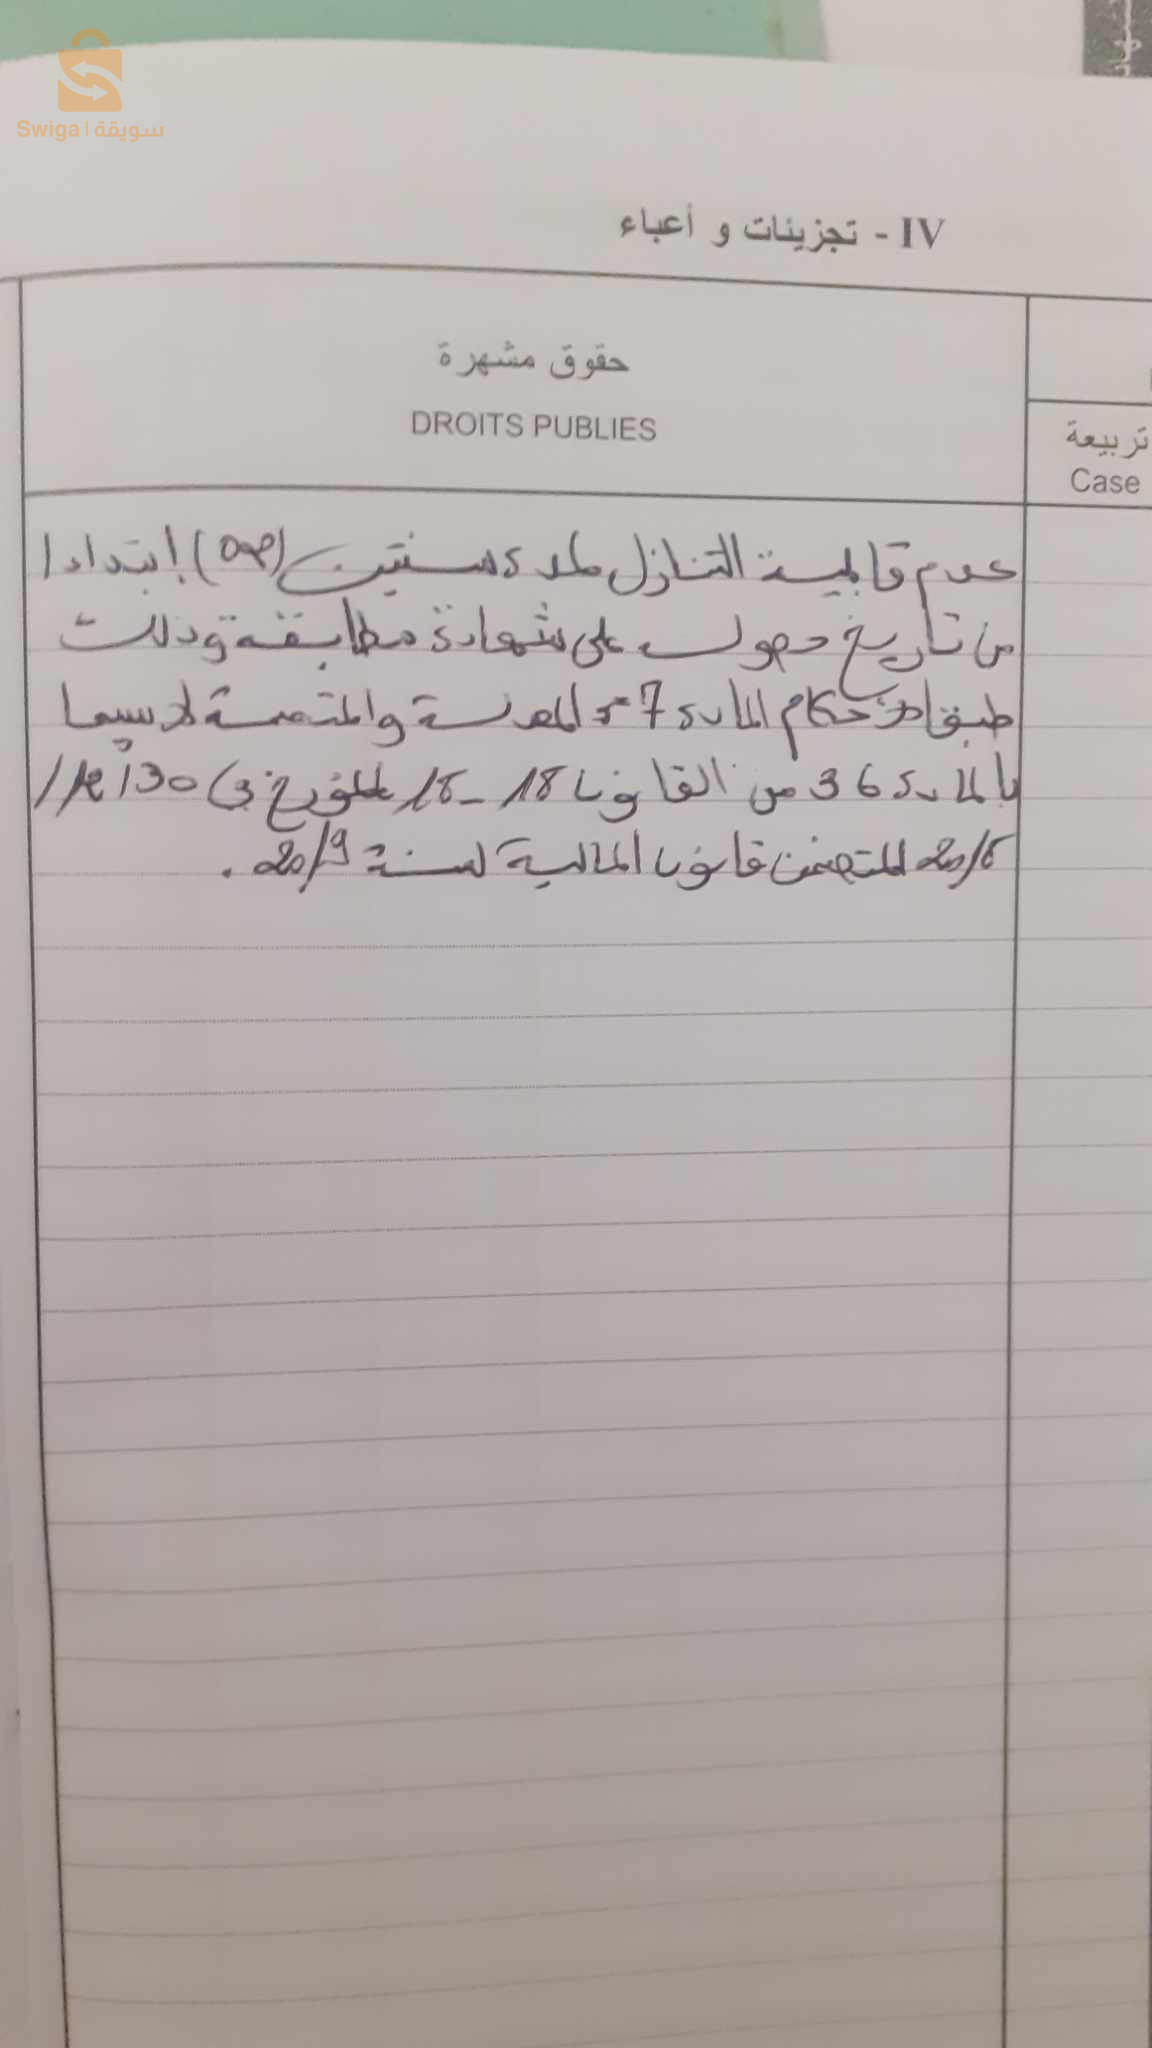 Swiga | سويقة
IV - تجزيئات و أعباء
حقوق مشهرة
DROITS PUBLIES
تربيعة
Case
عدم قابلية التنازل لمدة سنتين (02) إبتداءا
من تاريخ حصول على شهادة مطابقة وذلك
طبقا لأحكام المادة 57 المعدلة والمتممة لاسيما
بالمادة 36 من القانون 18-18 المؤرخ في 30/12/
2018 المتضمن قانون المالية لسنة 2019.